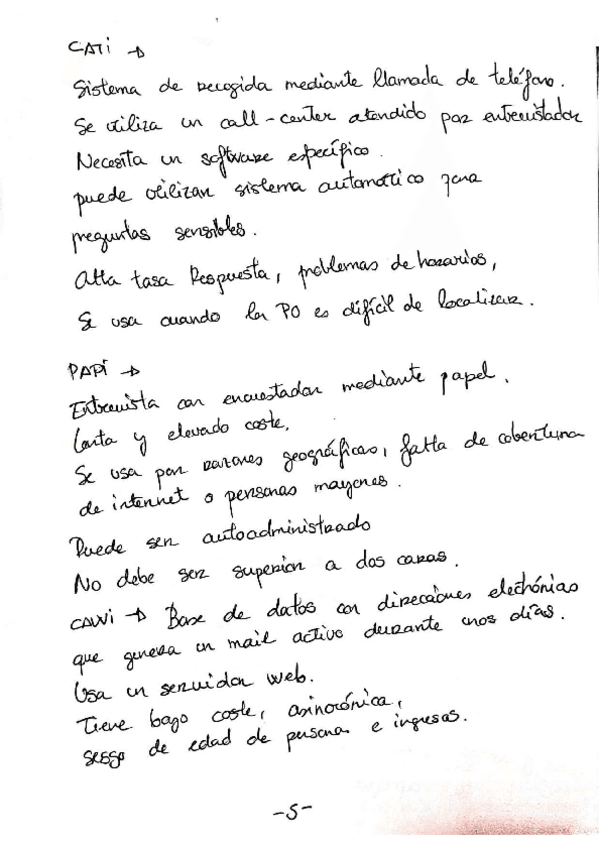 CATi →
Sistema de recogida mediante llamada de teléfono.
Se utiliza un call-center atendido por entrevistador
Necesita un software específico.
puede utilizar sistema automático para
preguntas sensibles.
Alta tasa Respuesta, problemas de horarios,
Se usa cuando la PO es difícil de localizar.
PAPi →
Entrevista con encuestador mediante papel.
Lenta y elevado coste.
Se usa por razones geográficas, falta de cobertura
de internet o personas mayores.
Puede ser autoadministrado
No debe ser superior a dos caras.
CAWi → Base de datos con direcciones electrónias
que genera un mail activo durante unos días.
Usa un servidor web.
Tiene bago coste, asincrónica,
sesgo de edad de persona e ingresos.
-5-